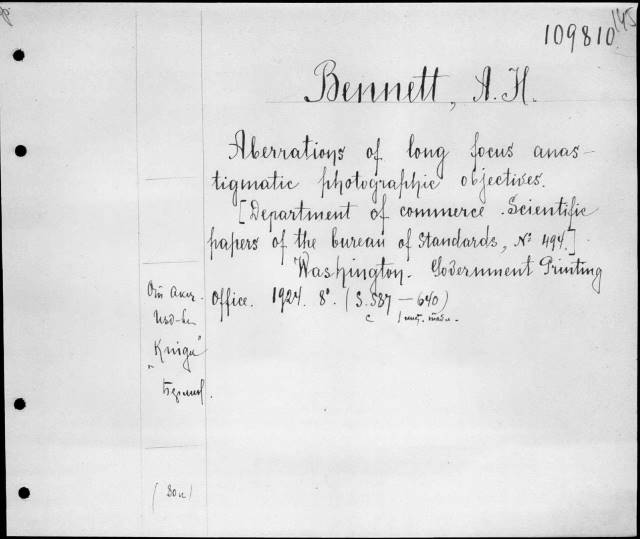 109810
145
Bennett, A. H.
Aberrations of long focus anas-
tigmatic photographic objectives.
[Department of commerce. Scientific
papers of the bureau of standards, № 494.]
Washington. Government Printing
Office. 1924. 8°. (S. 587 — 640)
с
Kniga"
(